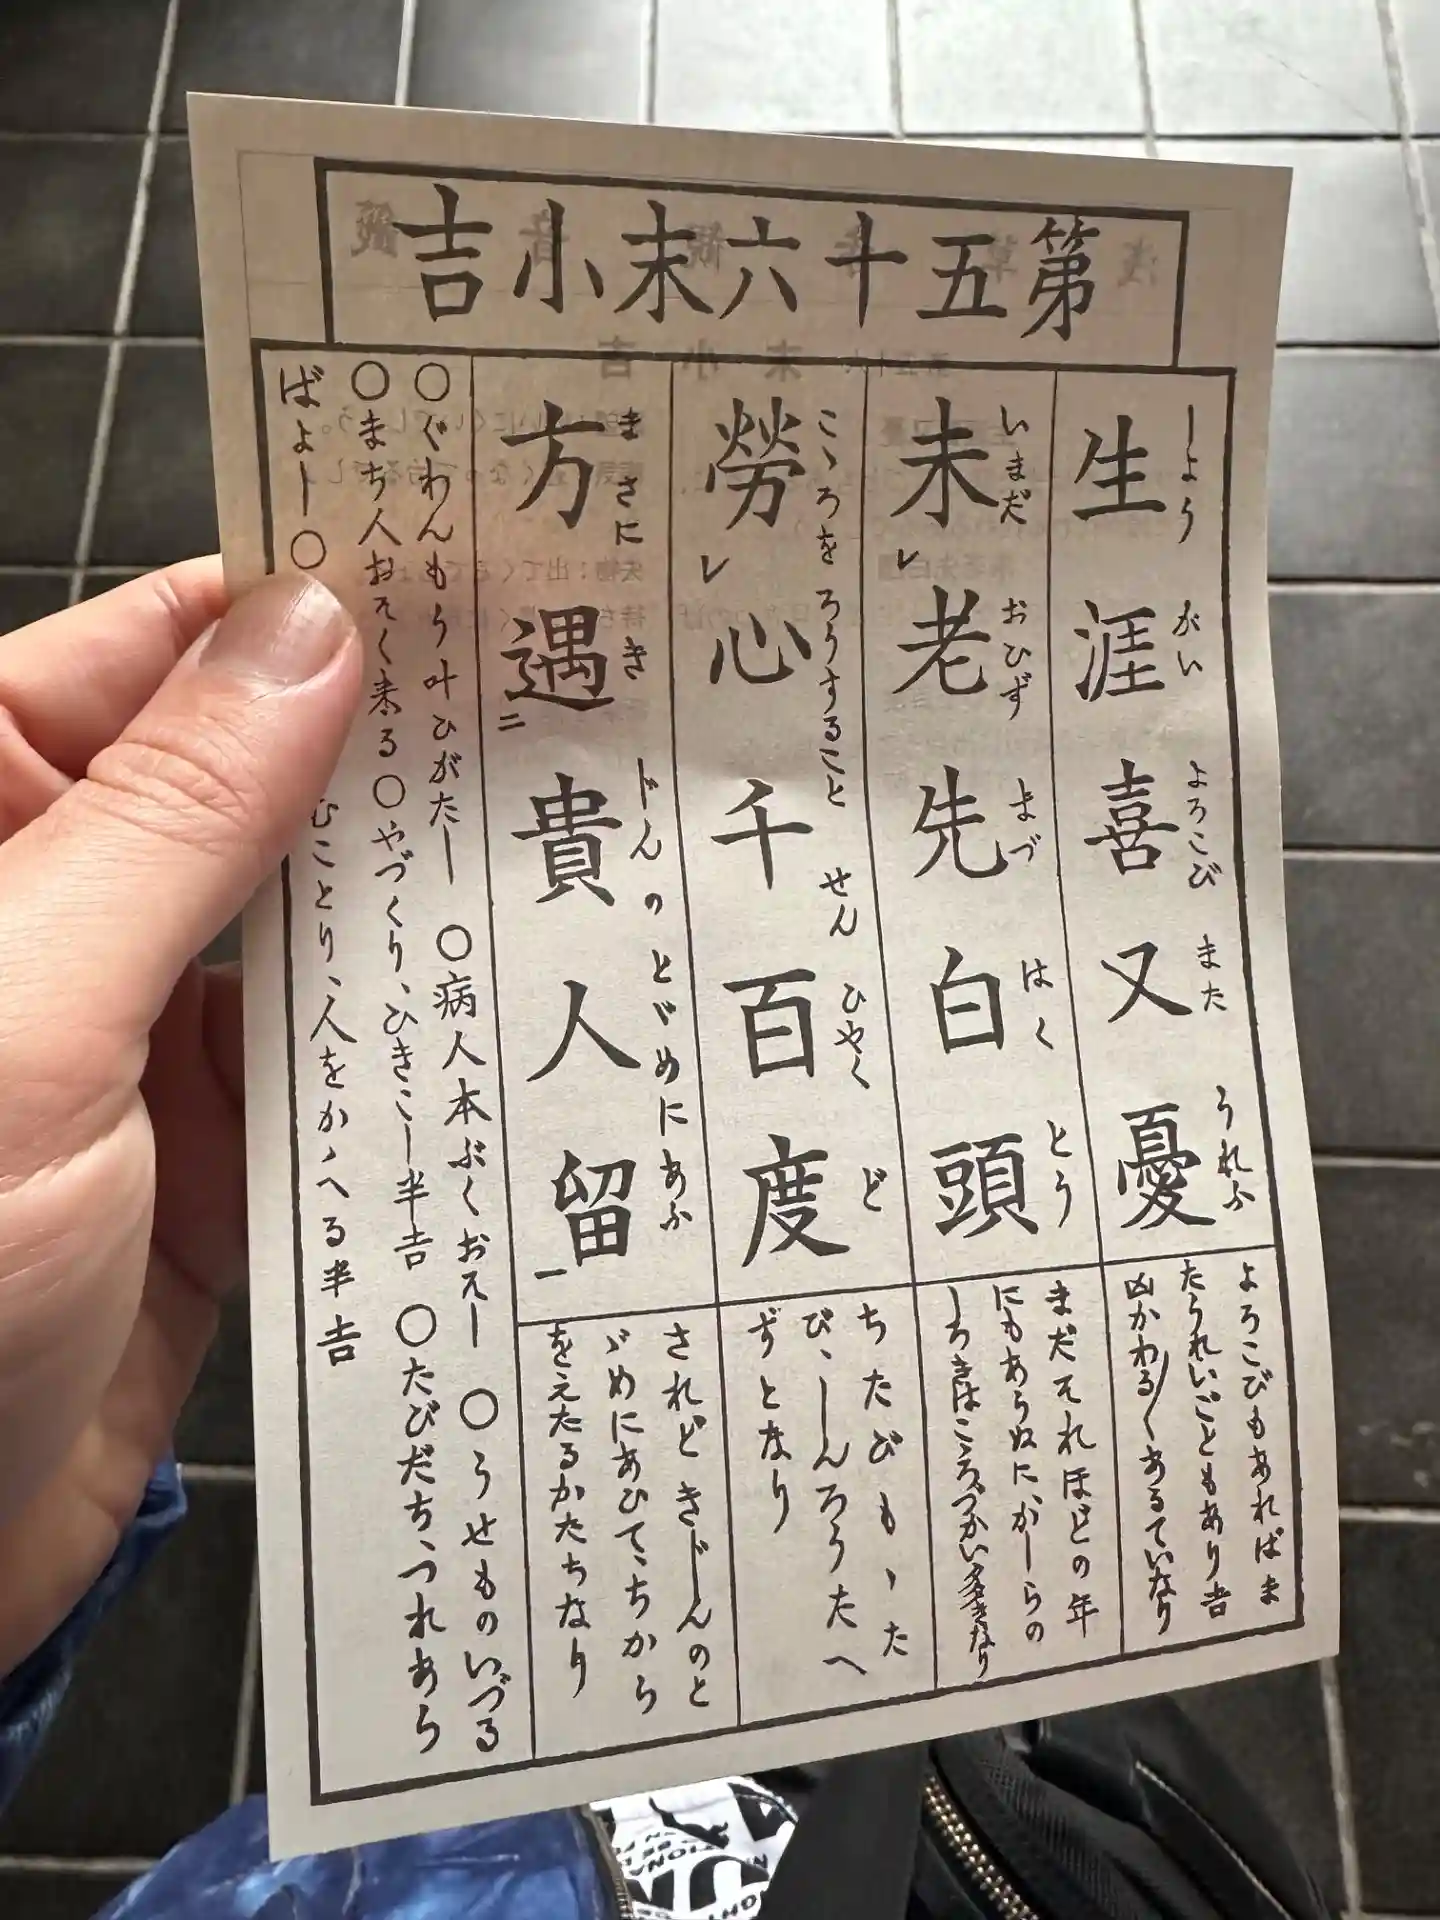 第五十六末小吉
生涯喜又憂
しようがいよろこびまたうれふ
よろこびもあればま
たうれいごともあり吉
凶かわる〳〵あるていなり
未レ老先白頭
いまだおひずまづはくとう
まだそれほどの年
にもあらぬに、かしらの
しろきはこゝろづかい多きなり
勞レ心千百度
こゝろをろうすることせんひやくど
ちたびもゝた
び、しんろうたへ
ずとなり
方遇二貴人留一
まさにきじんのとゞめにあふ
されどきじんのと
ゞめにあひて、ちから
をえたるかたちなり
○ぐわんもう叶ひがたし ○病人本ぶくおそし ○うせものいづる
○まち人おそく来る○やづくり、ひきこし半吉 ○たびだち、つれあら
ばよし○
むことり、人をかゝへる半吉